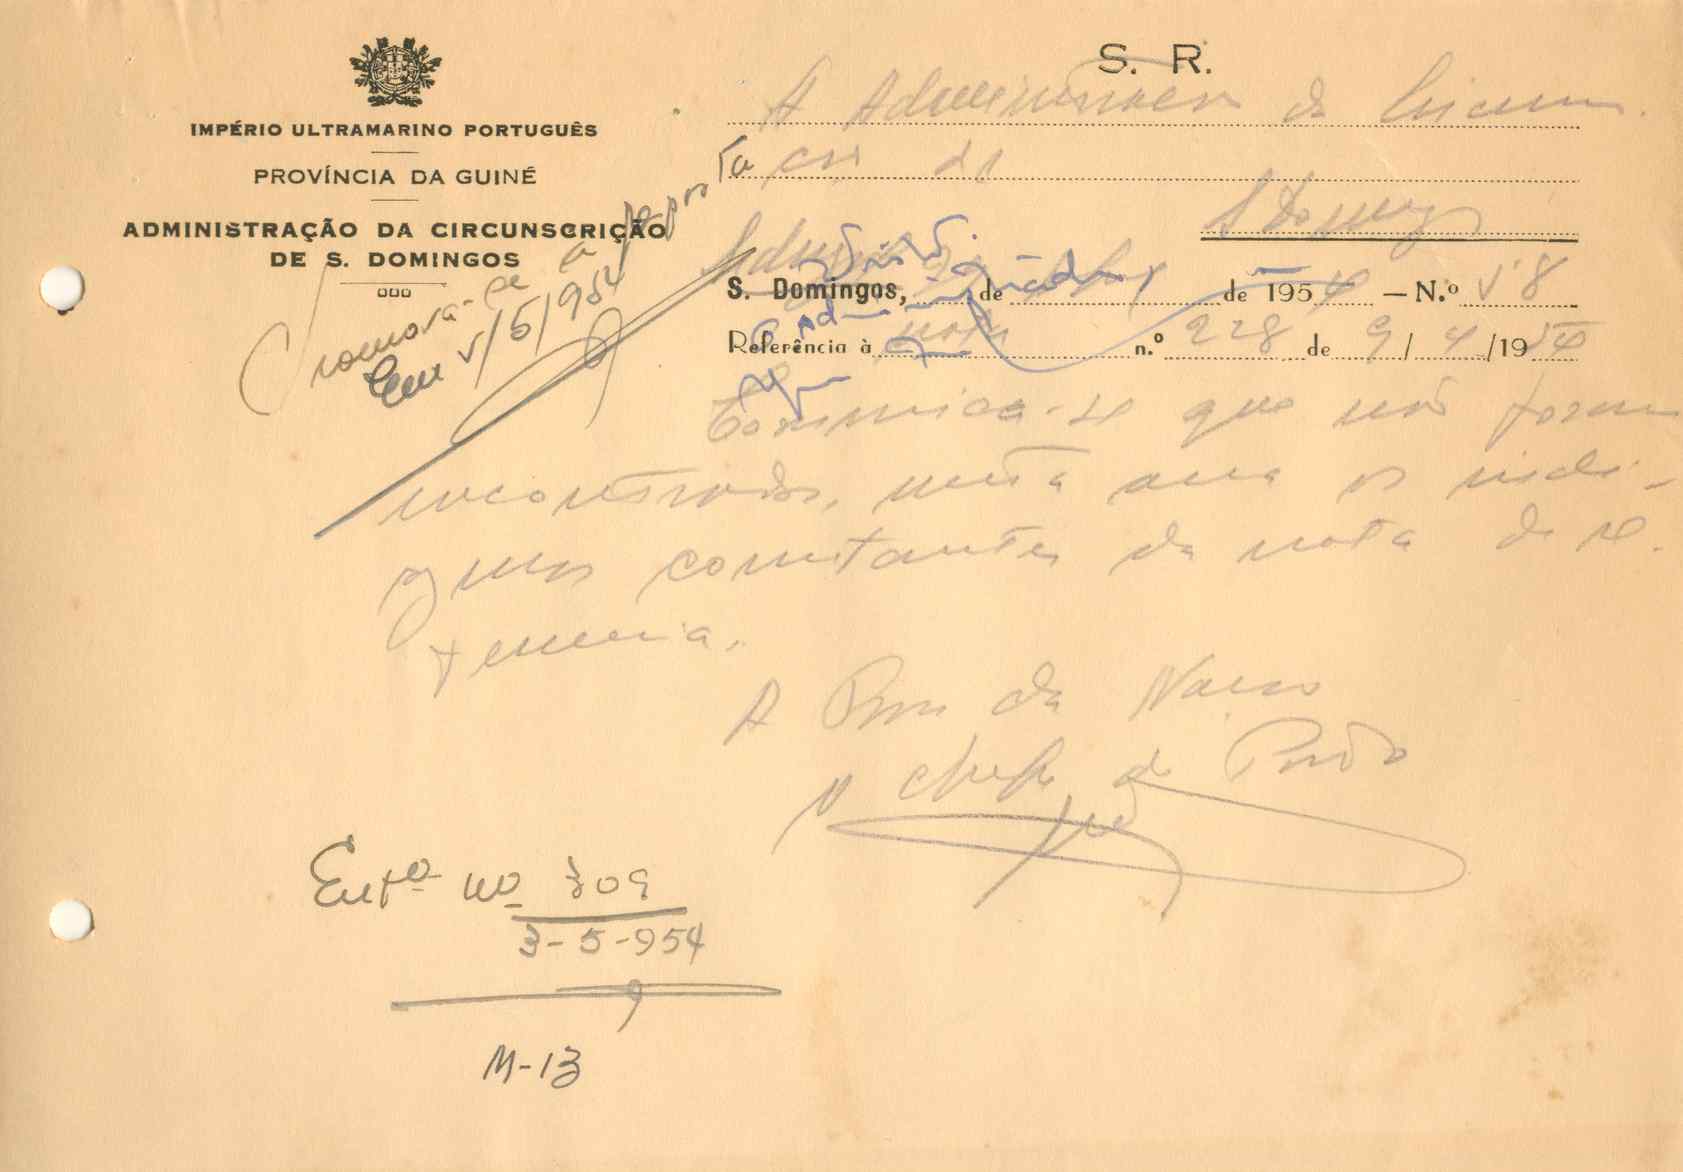 S. R.
IMPÉRIO ULTRAMARINO PORTUGUÊS
PROVÍNCIA DA GUINÉ
ADMINISTRAÇÃO DA CIRCUNSCRIÇÃO
DE S. DOMINGOS
A Administração da Circuns.
de
S Domingos
S. Domingos, de de 1954 — N.º 58
Referência à nota n.º 228 de 9/4/1954
Em 5/5/1954
Comunica-se que não foram
encontrados, nesta area os indi-
genas constantes da nota de re.
ferencia.
A Bem da Nação
O Chefe de Posto
Entª nº 309
3-5-954
M-13